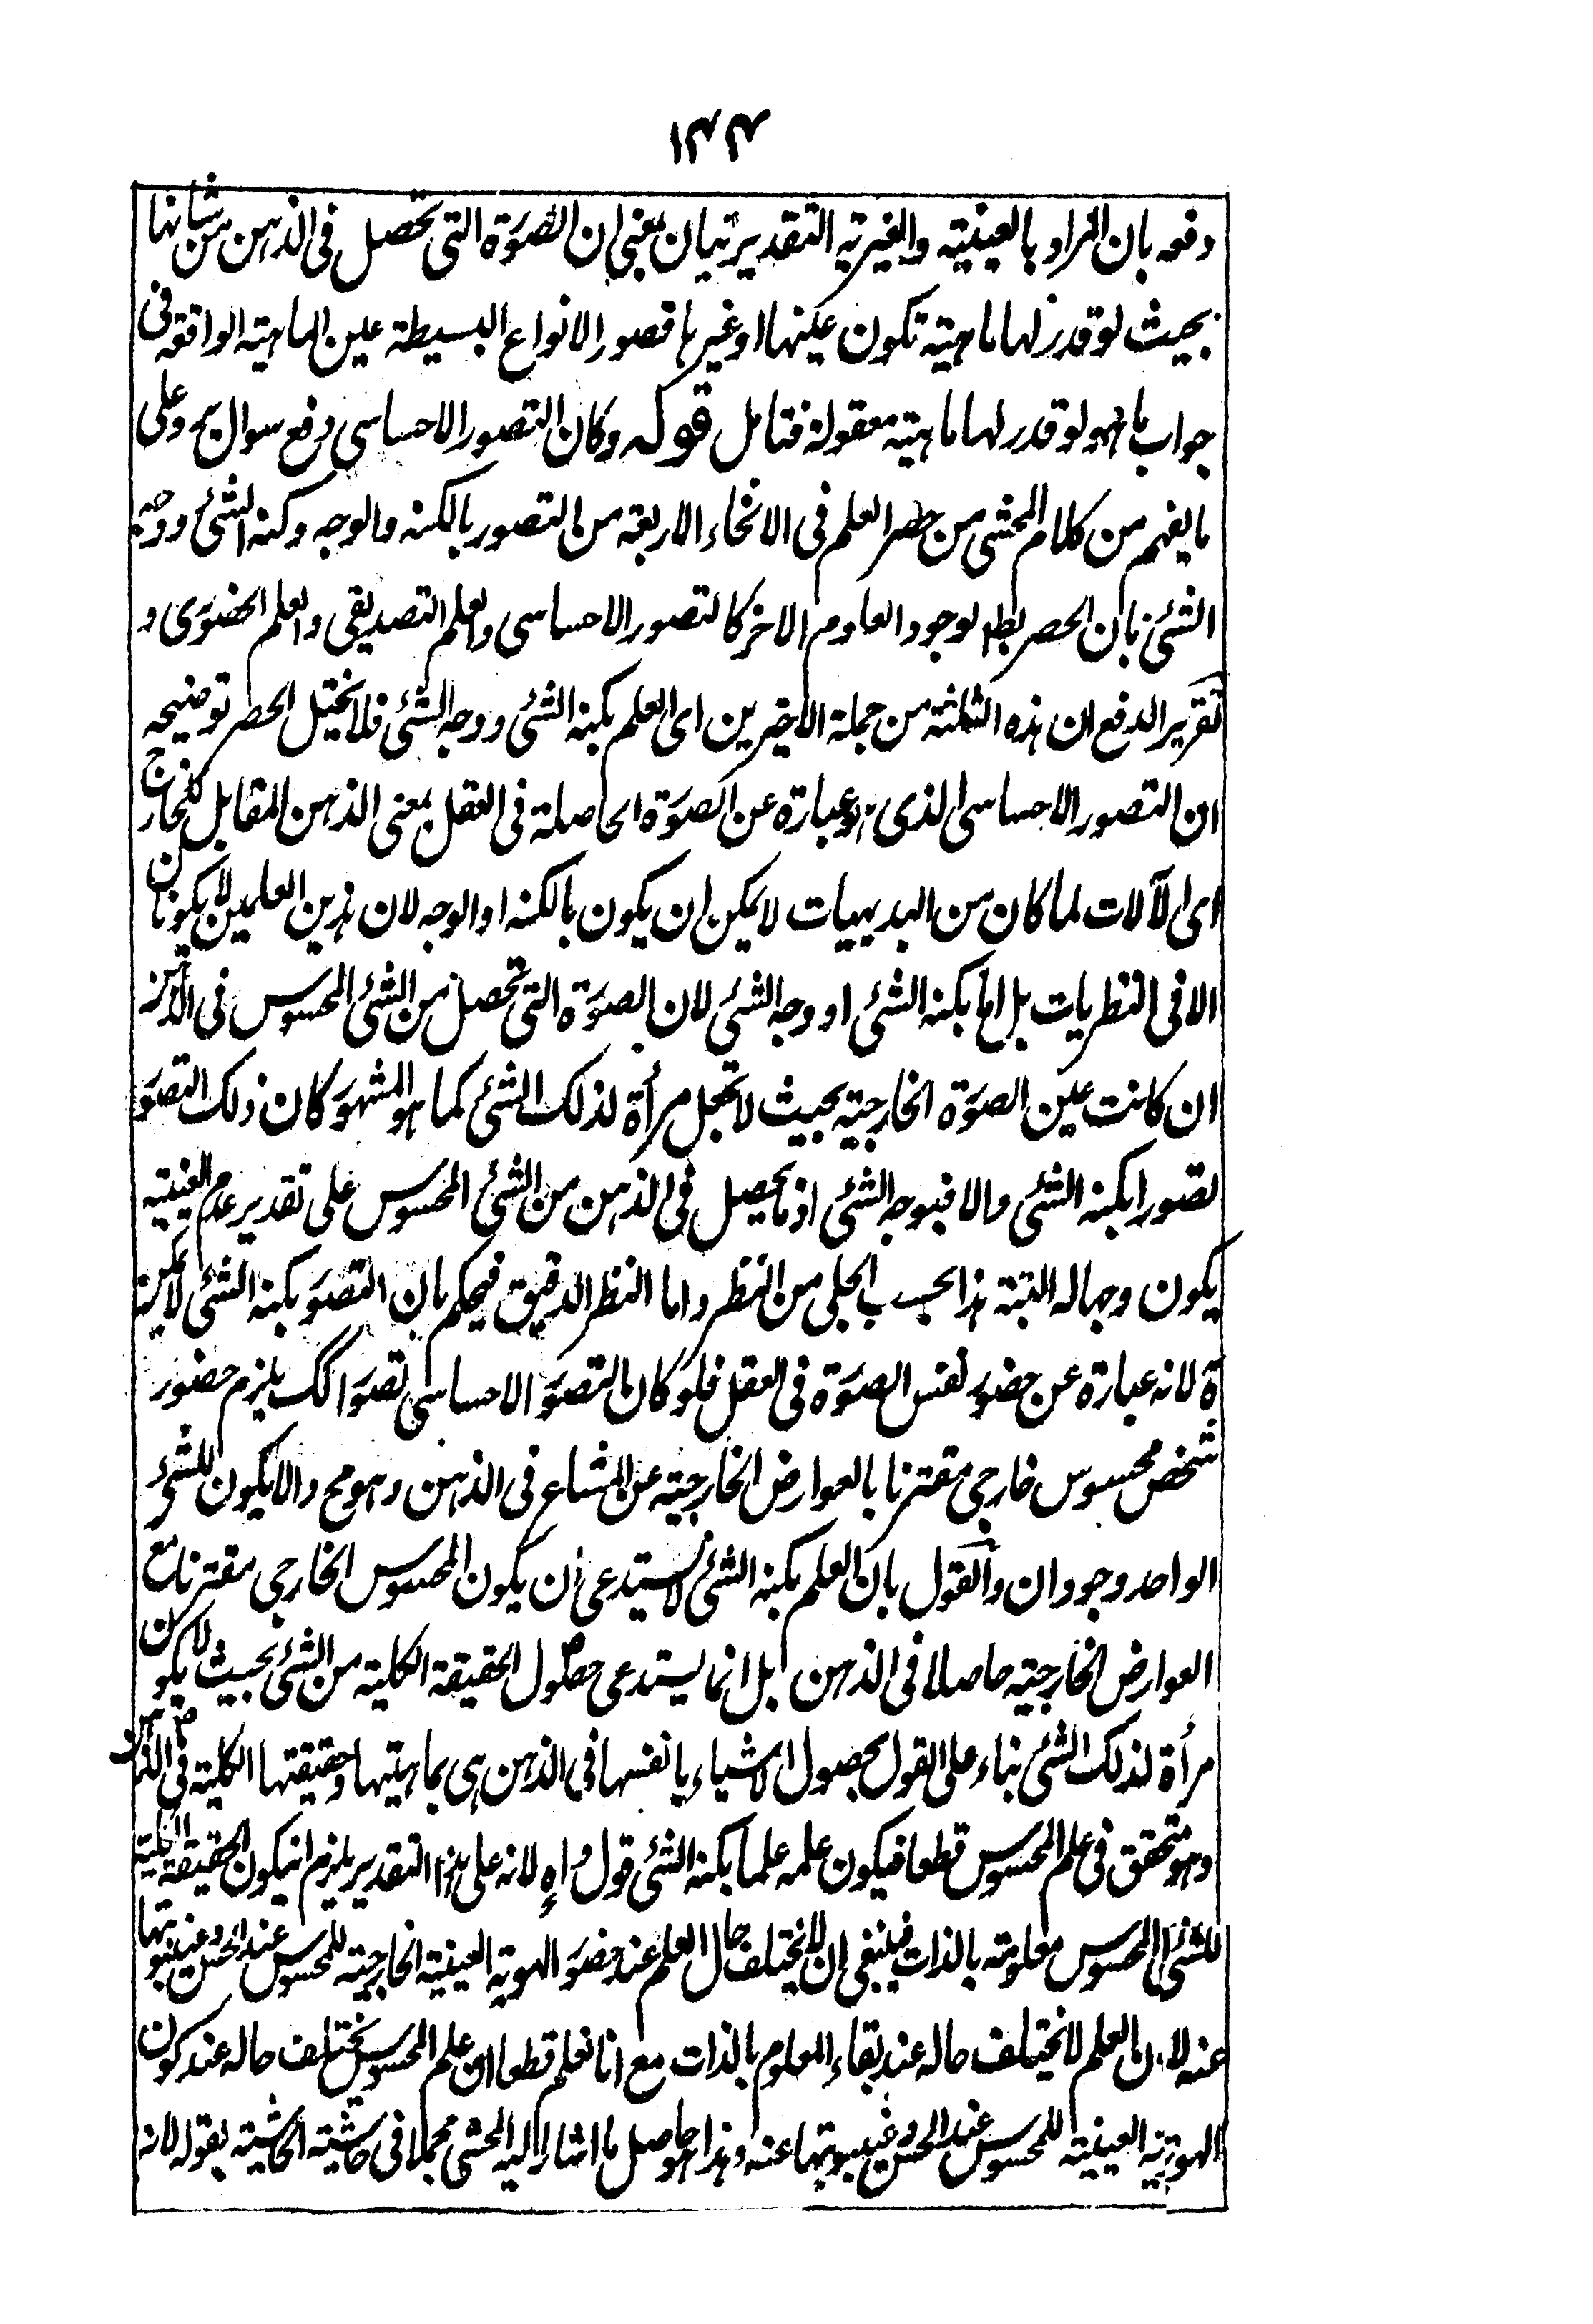 ١٣٤
دفعه بان المراد بالعينية والغيرية التقديريتان بمعنى ان الصورة التى تحصل فى الذهن من شانها
بحيث لو قدر لها ماهية تكون عينها او غيرها فصور الانواع البسيطة عين الماهية الواقعة فى
جواب ما هو لو قدر لها ماهية معقولة فتامل قوله وكان التصور الاحساسى دفع سوال يرد على
ما يفهم من كلام المحشى من حصر العلم فى الانحاء الاربعة من التصور بالكنه والوجه وكنه الشئ ووجه
الشئ بان الحصر بط لوجود العلوم الاخر كالتصور الاحساسى والعلم التصديقى والعلم الحضورى و
تقرير الدفع ان هذه الثلثة من جملة الاخيرين اى العلم بكنه الشئ ووجه الشئ فلا يختل الحصر توضيحه
ان التصور الاحساسى الذى هو عبارة عن الصورة الحاصلة فى العقل بمعنى الذهن المقابل للخارج
اى الآلات لما كان من البديهيات لا يمكن ان يكون بالكنه او الوجه لان هذين العلمين لا يكونان
الا فى النظريات بل اما بكنه الشئ او وجه الشئ لان الصورة التى تحصل من الشئ المحسوس فى الذهن
ان كانت عين الصورة الخارجية بحيث لا تجعل مرأة لذلك الشئ كما هو المشهور كان ذلك التصور
تصورا بكنه الشئ والا فبوجه الشئ اذ ما يحصل فى الذهن من الشئ المحسوس على تقدير عدم العينية
يكون وجها له البتة هذا بحسب الجلى من النظر واما النظر الدقيق فيحكم بان التصور بكنه الشئ لا يمكن
ة لانه عبارة عن حضور نفس الصورة فى العقل فلو كان التصور الاحساسى تصورا كك يلزم حضور
شخص محسوس خارجى مقترنا بالعوارض الخارجية عن المشاع فى الذهن وهو مح والا يكون للشئ
الواحد وجودان والقول بان العلم بكنه الشئ لا يستدعى ان يكون المحسوس الخارجى مقترنا مع
العوارض الخارجية حاصلا فى الذهن بل انما يستدعى حصول الحقيقة الكلية من الشئ بحيث لا يكون
مرأة لذلك الشئ بناء على القول بحصول الاشياء بانفسها فى الذهن اى بماهيتها وحقيقتها الكلية فى الذهن
وهو متحقق فى علم المحسوس قطعا فيكون علمه علما بكنه الشئ قول واه لانه على هذا التقدير يلزم ان يكون الحقيقة الكلية
للشئ المحسوس معلومة بالذات فينبغى ان لا يختلف حال العلم عند حضور الهوية العينية الخارجية للمحسوس عند الحس وغيبوبتها
عنه لان العلم لا يختلف حاله عند بقاء المعلوم بالذات مع انا نعلم قطعا ان علم المحسوس يختلف حاله عند كون
الهوية العينية للمحسوس عند الحس وغيبوبتها عنه وهذا هو حاصل ما اشار اليه المحشى مجملا فى حاشية الحاشية بقوله لانه